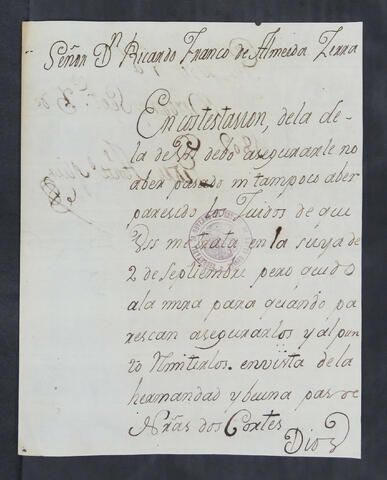 Señor Dn Ricardo Franco de Almeida Zerra
En costestasion, de la de
la de VS debo asegurarle no
aber pasado ni tampoco aber
paresido los Yuidos de que
VSs me trata en la suya de
2 de Septiembre pero quedo
ala mira para quando pa
rescan asegurarlos y al pun
to rimitirlos. en vista de la
hermandad y buena pas de
Nrãs dos Cortes
Dios